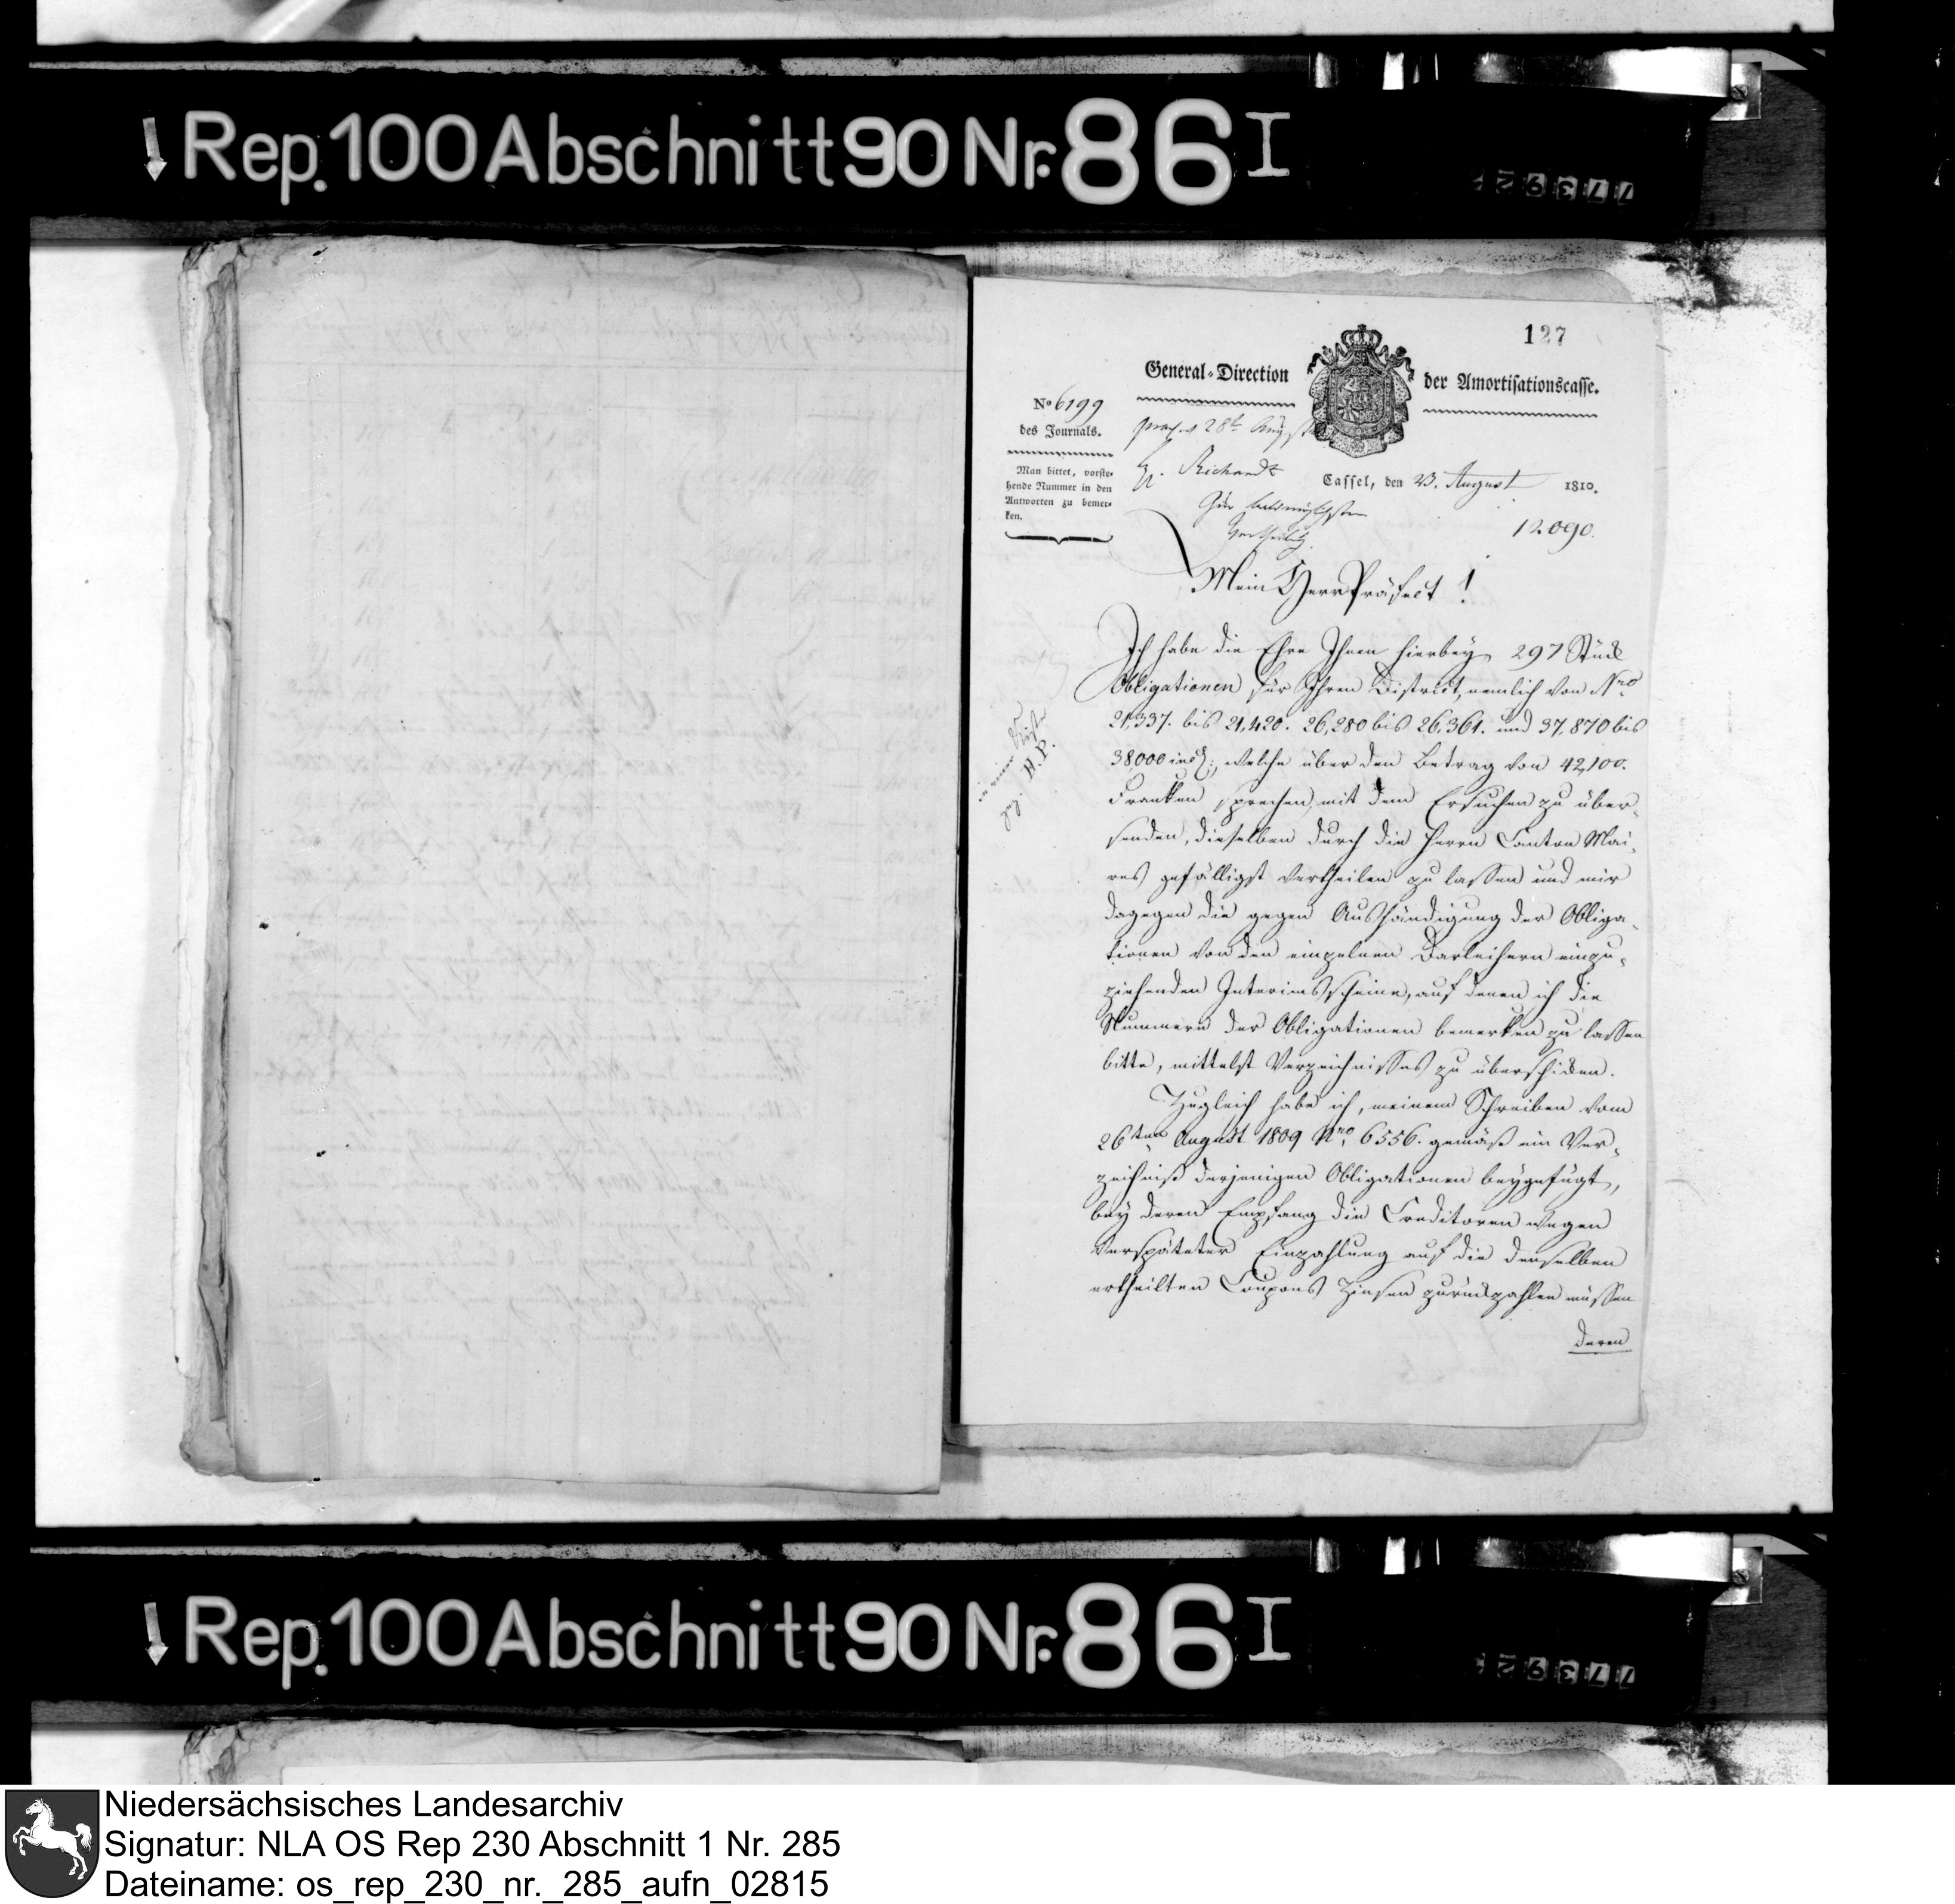 Rep. 100 Abschnitt 90 Nr. 86 I
127
General-Direction der Amortisationscasse.
No 6199
des Journals.
Man bittet, vorste-
hende Nummer in den
Antworten zu bemer-
ken.
28t August
Richardt
Cassel, den 23. August 1810.
12090.
Mein Herr Präfect!
Ich habe die Ehre Ihnen hierbey 297 Stück
Obligationen für Ihren District, nemlich von Nro
21,337. bis 21,420. 26,280 bis 26,361. und 37,870 bis
38000 incl:, welche über den Betrag von 42,100.
Franken sprechen, mit dem Ersuchen zu über-
senden, dieselben durch die Herrn Canton Mai-
res gefälligst vertheilen zu lassen und mir
dagegen die gegen Aushändigung der Obliga-
tionen von den einzelnen Darleihern einzu-
ziehenden Interimsscheine, auf denen ich die
Nummern der Obligationen bemerken zu lassen
bitte, mittelst Verzeichnisses zu überschicken.
Zugleich habe ich, meinem Schreiben vom
26ten August 1809 Nro 6556. gemäß ein Ver-
zeichniß derjenigen Obligationen beygefügt,
bey deren Empfang die Creditoren wegen
verspäteter Einzahlung auf die denselben
ertheilten Coupons Zinsen zurückzahlen müssen
deren
Rep. 100 Abschnitt 90 Nr. 86 I
Niedersächsisches Landesarchiv
Signatur: NLA OS Rep 230 Abschnitt 1 Nr. 285
Dateiname: os_rep_230_nr._285_aufn_02815